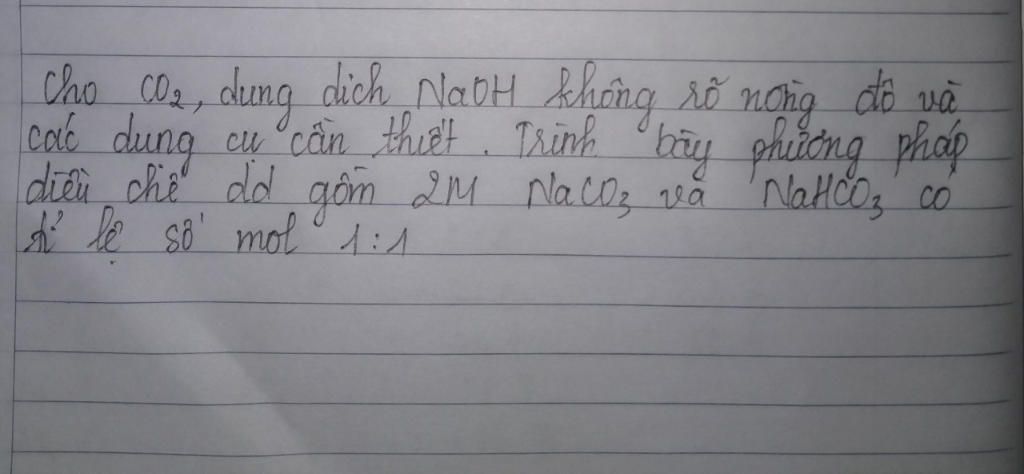 Cho CO₂, dung dich NaOH không rõ nông độ và
các dung cu cần thiết. Trình bày phương pháp
điều chế dd gồm 2M NaCO₃ và NaHCO₃ có
tỉ lệ số mol 1:1